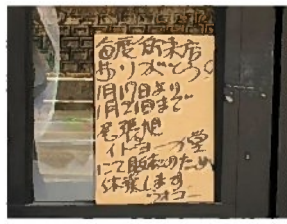 毎度御来店
ありがとう
1月17日より
1月21日まで
尾張旭
イトーヨーカ堂
にて販売のため
休業します